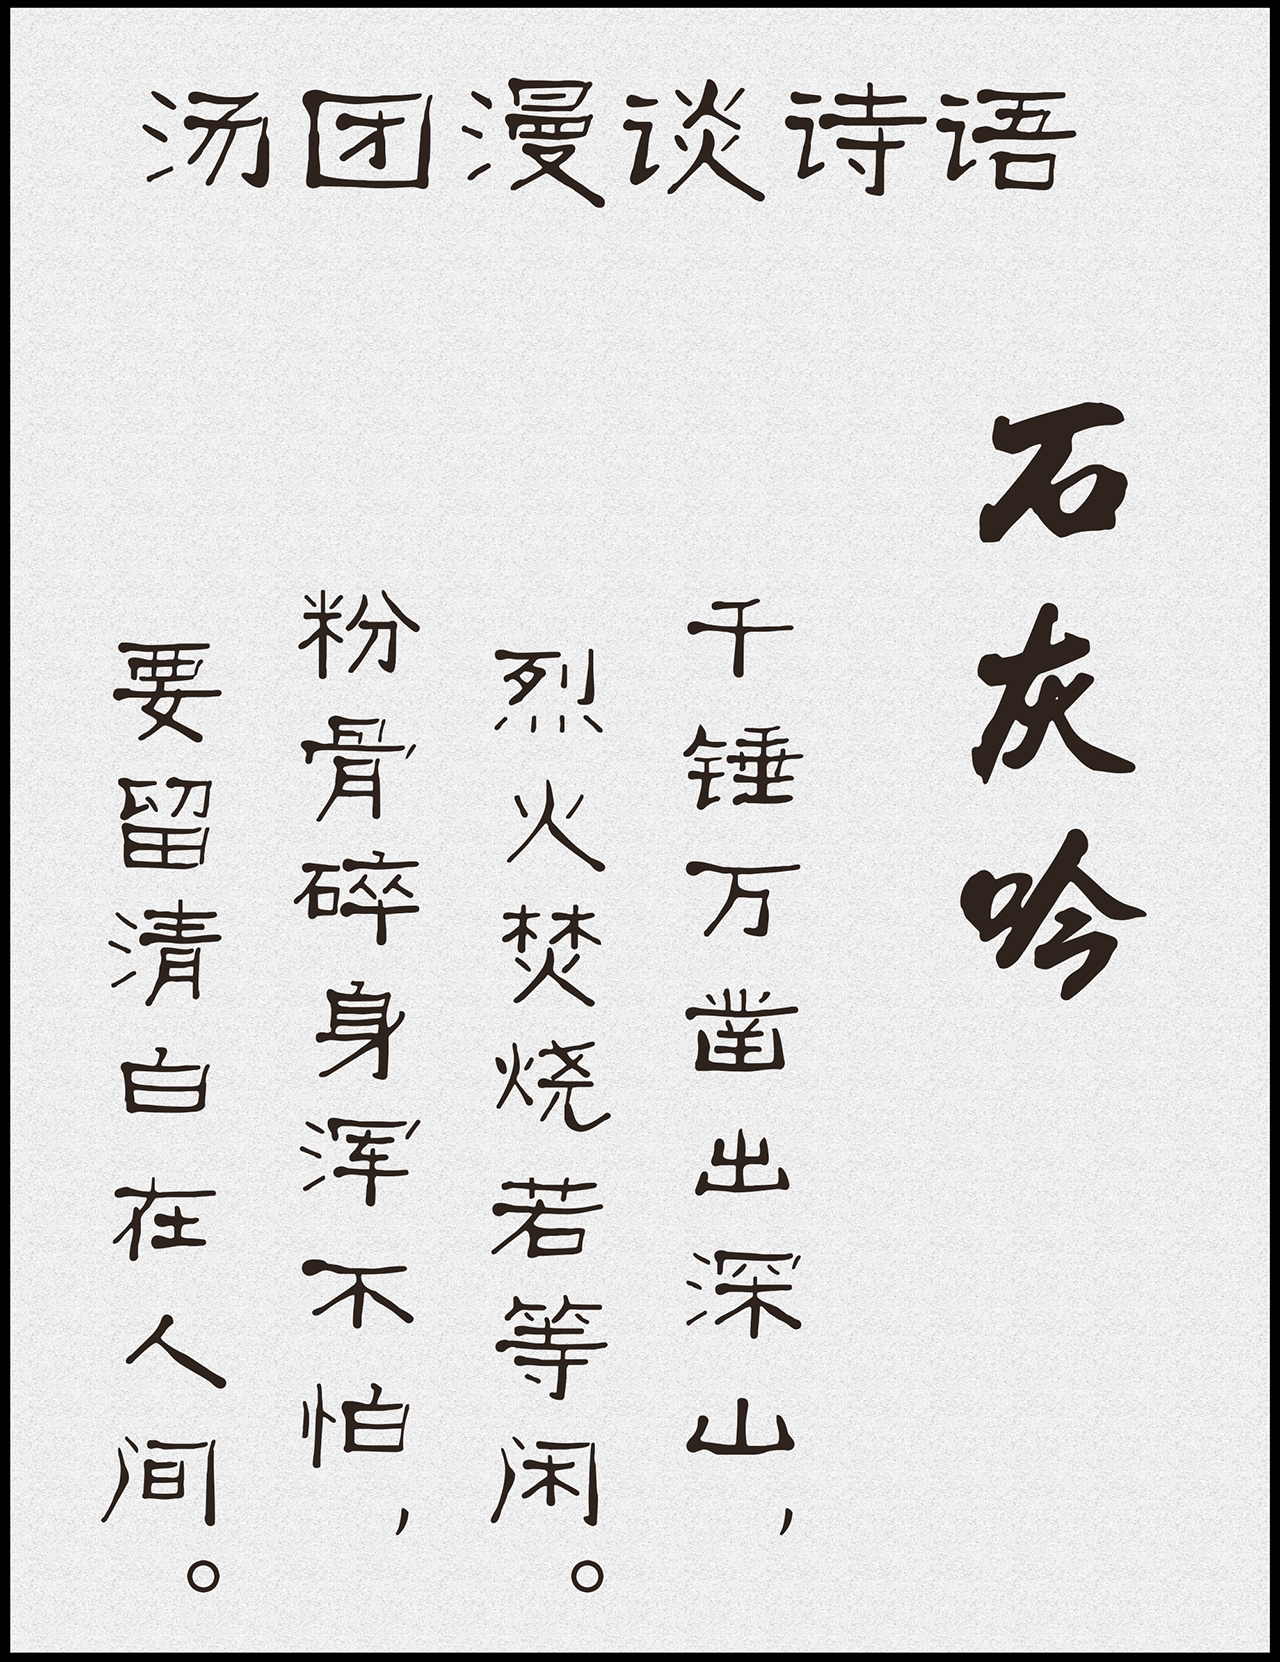 汤团漫谈诗语
石灰吟
千锤万凿出深山，
烈火焚烧若等闲。
粉骨碎身浑不怕，
要留清白在人间。